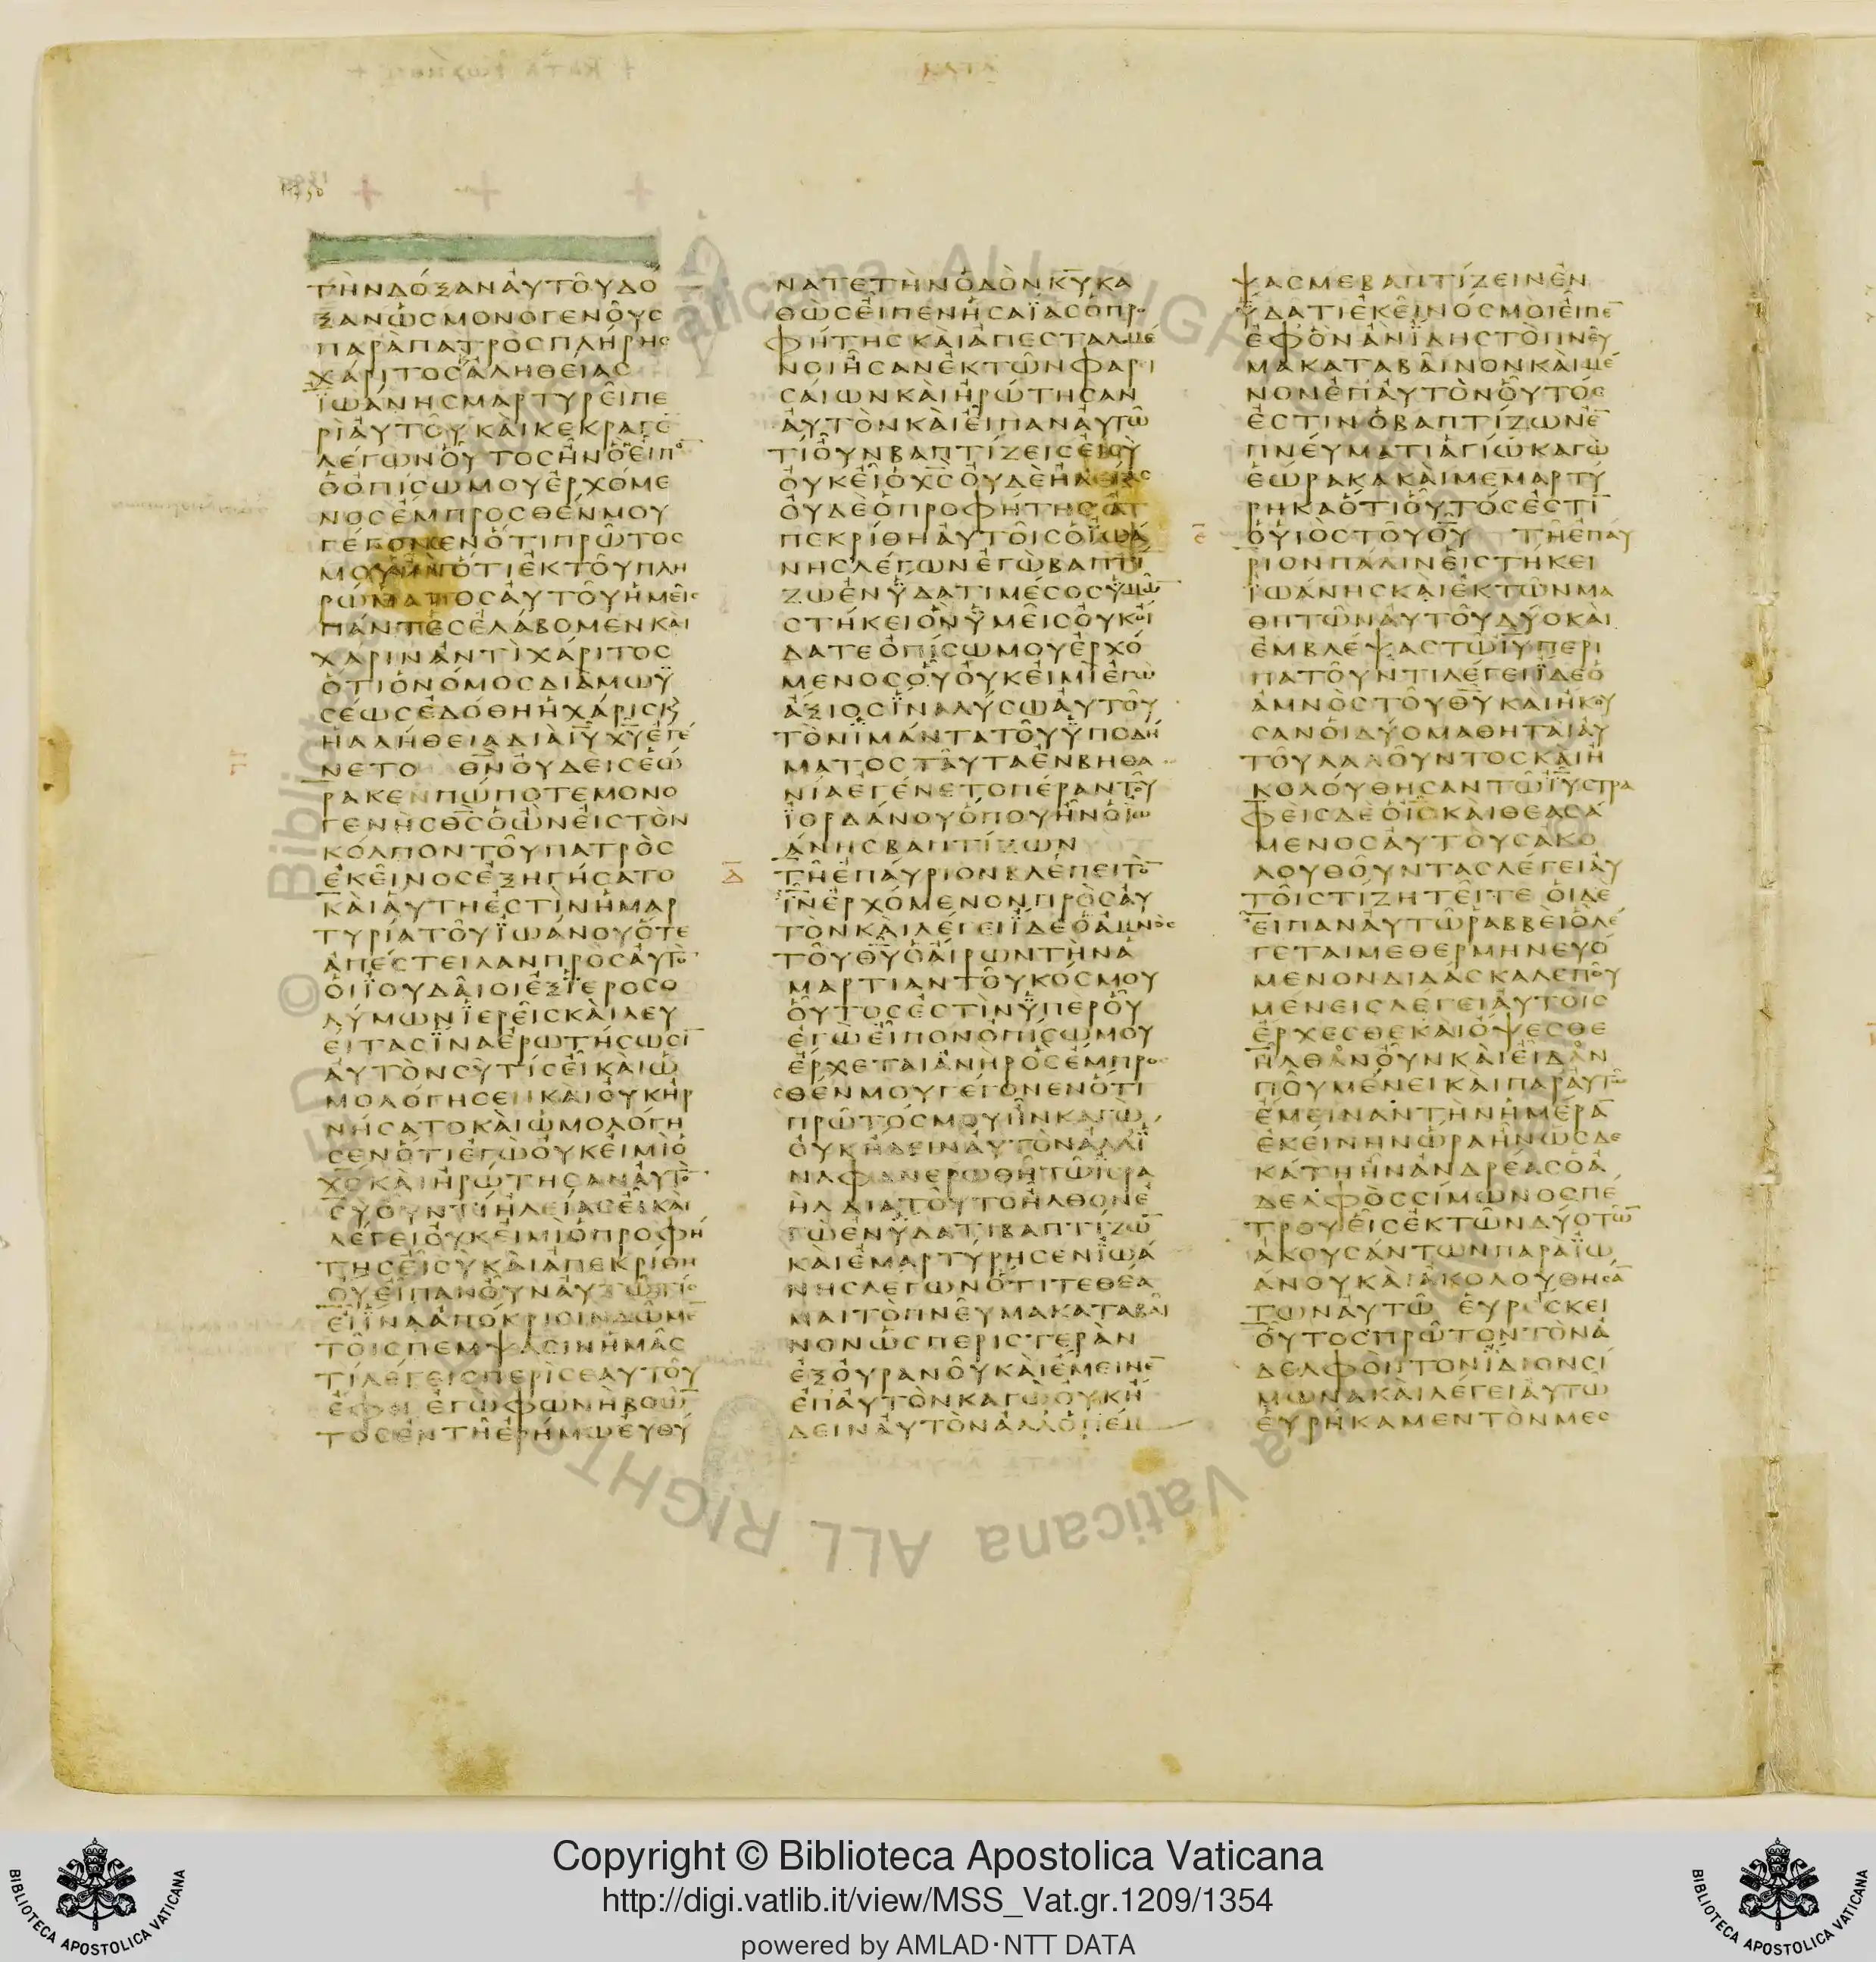 ΤΗΝΔΟΞΑΝΑΥΤΟΥΔΟ
ΞΑΝΩΣΜΟΝΟΓΕΝΟΥΣ
ΠΑΡΑΠΑΤΡΟΣΠΛΗΡΗΣ
ΧΑΡΙΤΟΣΑΛΗΘΕΙΑΣ
ΪΩΑΝΗΣΜΑΡΤΥΡΕΙΠΕ
ΡΙΑΥΤΟΥΚΑΙΚΕΚΡΑΓΕ
ΛΕΓΩΝΟΥΤΟΣΗΝΟΕΙΠΩ
ΟΟΠΙΣΩΜΟΥΕΡΧΟΜΕ
ΝΟΣΕΜΠΡΟΣΘΕΝΜΟΥ
ΓΕΓΟΝΕΝΟΤΙΠΡΩΤΟΣ
ΜΟΥΗΝΟΤΙΕΚΤΟΥΠΛΗ
ΡΩΜΑΤΟΣΑΥΤΟΥΗΜΕΙΣ
ΠΑΝΤΕΣΕΛΑΒΟΜΕΝΚΑΙ
ΧΑΡΙΝΑΝΤΙΧΑΡΙΤΟΣ
ΟΤΙΟΝΟΜΟΣΔΙΑΜΩΫ
ΣΕΩΣΕΔΟΘΗΗΧΑΡΙΣΚ
ΗΑΛΗΘΕΙΑΔΙΑΙΥΧΥΕΓΕ
ΝΕΤΟ ΘΝΟΥΔΕΙΣΕΩ
ΡΑΚΕΝΠΩΠΟΤΕΜΟΝΟ
ΓΕΝΗΣΘΣΟΩΝΕΙΣΤΟΝ
ΚΟΛΠΟΝΤΟΥΠΑΤΡΟΣ
ΕΚΕΙΝΟΣΕΞΗΓΗΣΑΤΟ
ΚΑΙΑΥΤΗΕΣΤΙΝΗΜΑΡ
ΤΥΡΙΑΤΟΥΪΩΑΝΟΥΟΤΕ
ΑΠΕΣΤΕΙΛΑΝΠΡΟΣΑΥΤΟ
ΟΙΪΟΥΔΑΙΟΙΕΞΪΕΡΟΣΟ
ΛΥΜΩΝΪΕΡΕΙΣΚΑΙΛΕΥ
ΕΙΤΑΣΪΝΑΕΡΩΤΗΣΩΣΙ
ΑΥΤΟΝΣΥΤΙΣΕΙΚΑΙΩ
ΜΟΛΟΓΗΣΕΝΚΑΙΟΥΚΗΡ
ΝΗΣΑΤΟΚΑΙΩΜΟΛΟΓΗ
ΣΕΝΟΤΙΕΓΩΟΥΚΕΙΜΙΟ
ΧΣΚΑΙΗΡΩΤΗΣΑΝΑΥΤΟ
ΣΥΟΥΝΤΙΗΛΕΙΑΣΕΙΚΑΙ
ΛΕΓΕΙΟΥΚΕΙΜΙΟΠΡΟΦΗ
ΤΗΣΕΙΣΥΚΑΙΑΠΕΚΡΙΘΗ
ΟΥΕΙΠΑΝΟΥΝΑΥΤΩΤΙΣ
ΕΙΪΝΑΑΠΟΚΡΙΣΙΝΔΩΜΕ
ΤΟΙΣΠΕΜΨΑΣΙΝΗΜΑΣ
ΤΙΛΕΓΕΙΣΠΕΡΙΣΕΑΥΤΟΥ
ΕΦΗ ΕΓΩΦΩΝΗΒΟΩ
ΤΟΣΕΝΤΗΕΡΗΜΩΕΥΘΥ
ΝΑΤΕΤΗΝΟΔΟΝΚΥΚΑ
ΘΩΣΕΙΠΕΝΗΣΑΪΑΣΟΠΡΟ
ΦΗΤΗΣΚΑΙΑΠΕΣΤΑΛΜΕ
ΝΟΙΗΣΑΝΕΚΤΩΝΦΑΡΙ
ΣΑΙΩΝΚΑΙΗΡΩΤΗΣΑΝ
ΑΥΤΟΝΚΑΙΕΙΠΑΝΑΥΤΩ
ΤΙΟΥΝΒΑΠΤΙΖΕΙΣΕΙΣΥ
ΟΥΚΕΙΟΧΣΟΥΔΕΗΛΕΙΑΣ
ΟΥΔΕΟΠΡΟΦΗΤΗΣΑ
ΠΕΚΡΙΘΗΑΥΤΟΙΣΟΪΩΑ
ΝΗΣΛΕΓΩΝΕΓΩΒΑΠΤΙ
ΖΩΕΝΫΔΑΤΙΜΕΣΟΣΫΜΩ
ΣΤΗΚΕΙΟΝΫΜΕΙΣΟΥΚΟΙ
ΔΑΤΕΟΠΙΣΩΜΟΥΕΡΧΟ
ΜΕΝΟΣΟΥΟΥΚΕΙΜΙΕΓΩ
ΑΞΙΟΣΪΝΑΛΥΣΩΑΥΤΟΥ
ΤΟΝΪΜΑΝΤΑΤΟΥΫΠΟΔΗ
ΜΑΤΟΣΤΑΥΤΑΕΝΒΗΘΑ
ΝΙΑΕΓΕΝΕΤΟΠΕΡΑΝΤΟΥ
ΪΟΡΔΑΝΟΥΟΠΟΥΗΝΟΪΩ
ΑΝΗΣΒΑΠΤΙΖΩΝ
Δ
ΤΗΕΠΑΥΡΙΟΝΒΛΕΠΕΙΤΟ
ΙΝΕΡΧΟΜΕΝΟΝΠΡΟΣΑΥ
ΤΟΝΚΑΙΛΕΓΕΙΪΔΕΟΑΜΝΟΣ
ΤΟΥΘΥΟΑΙΡΩΝΤΗΝΑ
ΜΑΡΤΙΑΝΤΟΥΚΟΣΜΟΥ
ΟΥΤΟΣΕΣΤΙΝΫΠΕΡΟΥ
ΕΓΩΕΙΠΟΝΟΠΙΣΩΜΟΥ
ΕΡΧΕΤΑΙΑΝΗΡΟΣΕΜΠΡΟ
ΣΘΕΝΜΟΥΓΕΓΟΝΕΝΟΤΙ
ΠΡΩΤΟΣΜΟΥΗΝΚΑΓΩ
ΟΥΚΗΔΕΙΝΑΥΤΟΝΑΛΛΪ
ΝΑΦΑΝΕΡΩΘΗΤΩΪΣΡΑ
ΗΛΔΙΑΤΟΥΤΟΗΛΘΟΝΕ
ΓΩΕΝΫΔΑΤΙΒΑΠΤΙΖΩ
ΚΑΙΕΜΑΡΤΥΡΗΣΕΝΪΩΑ
ΝΗΣΛΕΓΩΝΟΤΙΤΕΘΕΑ
ΜΑΙΤΟΠΝΕΥΜΑΚΑΤΑΒΑΙ
ΝΟΝΩΣΠΕΡΙΣΤΕΡΑΝ
ΕΞΟΥΡΑΝΟΥΚΑΙΕΜΕΙΝΕ
ΕΠΑΥΤΟΝΚΑΓΩΟΥΚΗ
ΔΕΙΝΑΥΤΟΝΑΛΛΟΠΕΜ
ΨΑΣΜΕΒΑΠΤΙΖΕΙΝΕΝ
ΫΔΑΤΙΕΚΕΙΝΟΣΜΟΙΕΙΠΕ
ΕΦΟΝΑΝΪΔΗΣΤΟΠΝΕΥ
ΜΑΚΑΤΑΒΑΙΝΟΝΚΑΙΜΕ
ΝΟΝΕΠΑΥΤΟΝΟΥΤΟΣ
ΕΣΤΙΝΟΒΑΠΤΙΖΩΝΕ
ΠΝΕΥΜΑΤΙΑΓΙΩΚΑΓΩ
ΕΩΡΑΚΑΚΑΙΜΕΜΑΡΤΥ
ΡΗΚΑΟΤΙΟΥΤΟΣΕΣΤΙ
ΟΥΙΟΣΤΟΥΘΥ ΤΗΕΠΑΥ
Ε
ΡΙΟΝΠΑΛΙΝΕΙΣΤΗΚΕΙ
ΪΩΑΝΗΣΚΑΙΕΚΤΩΝΜΑ
ΘΗΤΩΝΑΥΤΟΥΔΥΟΚΑΙ
ΕΜΒΛΕΨΑΣΤΩΙΥΠΕΡΙ
ΠΑΤΟΥΝΤΙΛΕΓΕΙΪΔΕΟ
ΑΜΝΟΣΤΟΥΘΥΚΑΙΗΚΟΥ
ΣΑΝΟΙΔΥΟΜΑΘΗΤΑΙΑΥ
ΤΟΥΛΑΛΟΥΝΤΟΣΚΑΙΗ
ΚΟΛΟΥΘΗΣΑΝΤΩΙΥΣΤΡΑ
ΦΕΙΣΔΕΟΙΣΚΑΙΘΕΑΣΑ
ΜΕΝΟΣΑΥΤΟΥΣΑΚΟ
ΛΟΥΘΟΥΝΤΑΣΛΕΓΕΙΑΥ
ΤΟΙΣΤΙΖΗΤΕΙΤΕ ΟΙΔΕ
ΕΙΠΑΝΑΥΤΩΡΑΒΒΕΙΟΛΕ
ΓΕΤΑΙΜΕΘΕΡΜΗΝΕΥΟ
ΜΕΝΟΝΔΙΔΑΣΚΑΛΕΠΟΥ
ΜΕΝΕΙΣΛΕΓΕΙΑΥΤΟΙΣ
ΕΡΧΕΣΘΕΚΑΙΟΨΕΣΘΕ
ΗΛΘΑΝΟΥΝΚΑΙΕΙΔΑΝ
ΠΟΥΜΕΝΕΙΚΑΙΠΑΡΑΥΤΩ
ΕΜΕΙΝΑΝΤΗΝΗΜΕΡΑ
ΕΚΕΙΝΗΝΩΡΑΗΝΩΣΔΕ
ΚΑΤΗΗΝΑΝΔΡΕΑΣΟΑ
ΔΕΛΦΟΣΣΙΜΩΝΟΣΠΕ
ΤΡΟΥΕΙΣΕΚΤΩΝΔΥΟΤΩ
ΑΚΟΥΣΑΝΤΩΝΠΑΡΑΪΩ
ΑΝΟΥΚΑΙΑΚΟΛΟΥΘΗΣΑ
ΤΩΝΑΥΤΩ ΕΥΡΙΣΚΕΙ
ΟΥΤΟΣΠΡΩΤΟΝΤΟΝΑ
ΔΕΛΦΟΝΤΟΝΪΔΙΟΝΣΙ
ΜΩΝΑΚΑΙΛΕΓΕΙΑΥΤΩ
ΕΥΡΗΚΑΜΕΝΤΟΝΜΕΣ
Copyright © Biblioteca Apostolica Vaticana
http://digi.vatlib.it/view/MSS_Vat.gr.1209/1354
powered by AMLAD·NTT DATA
BIBLIOTECA APOSTOLICA VATICANA
BIBLIOTECA APOSTOLICA VATICANA